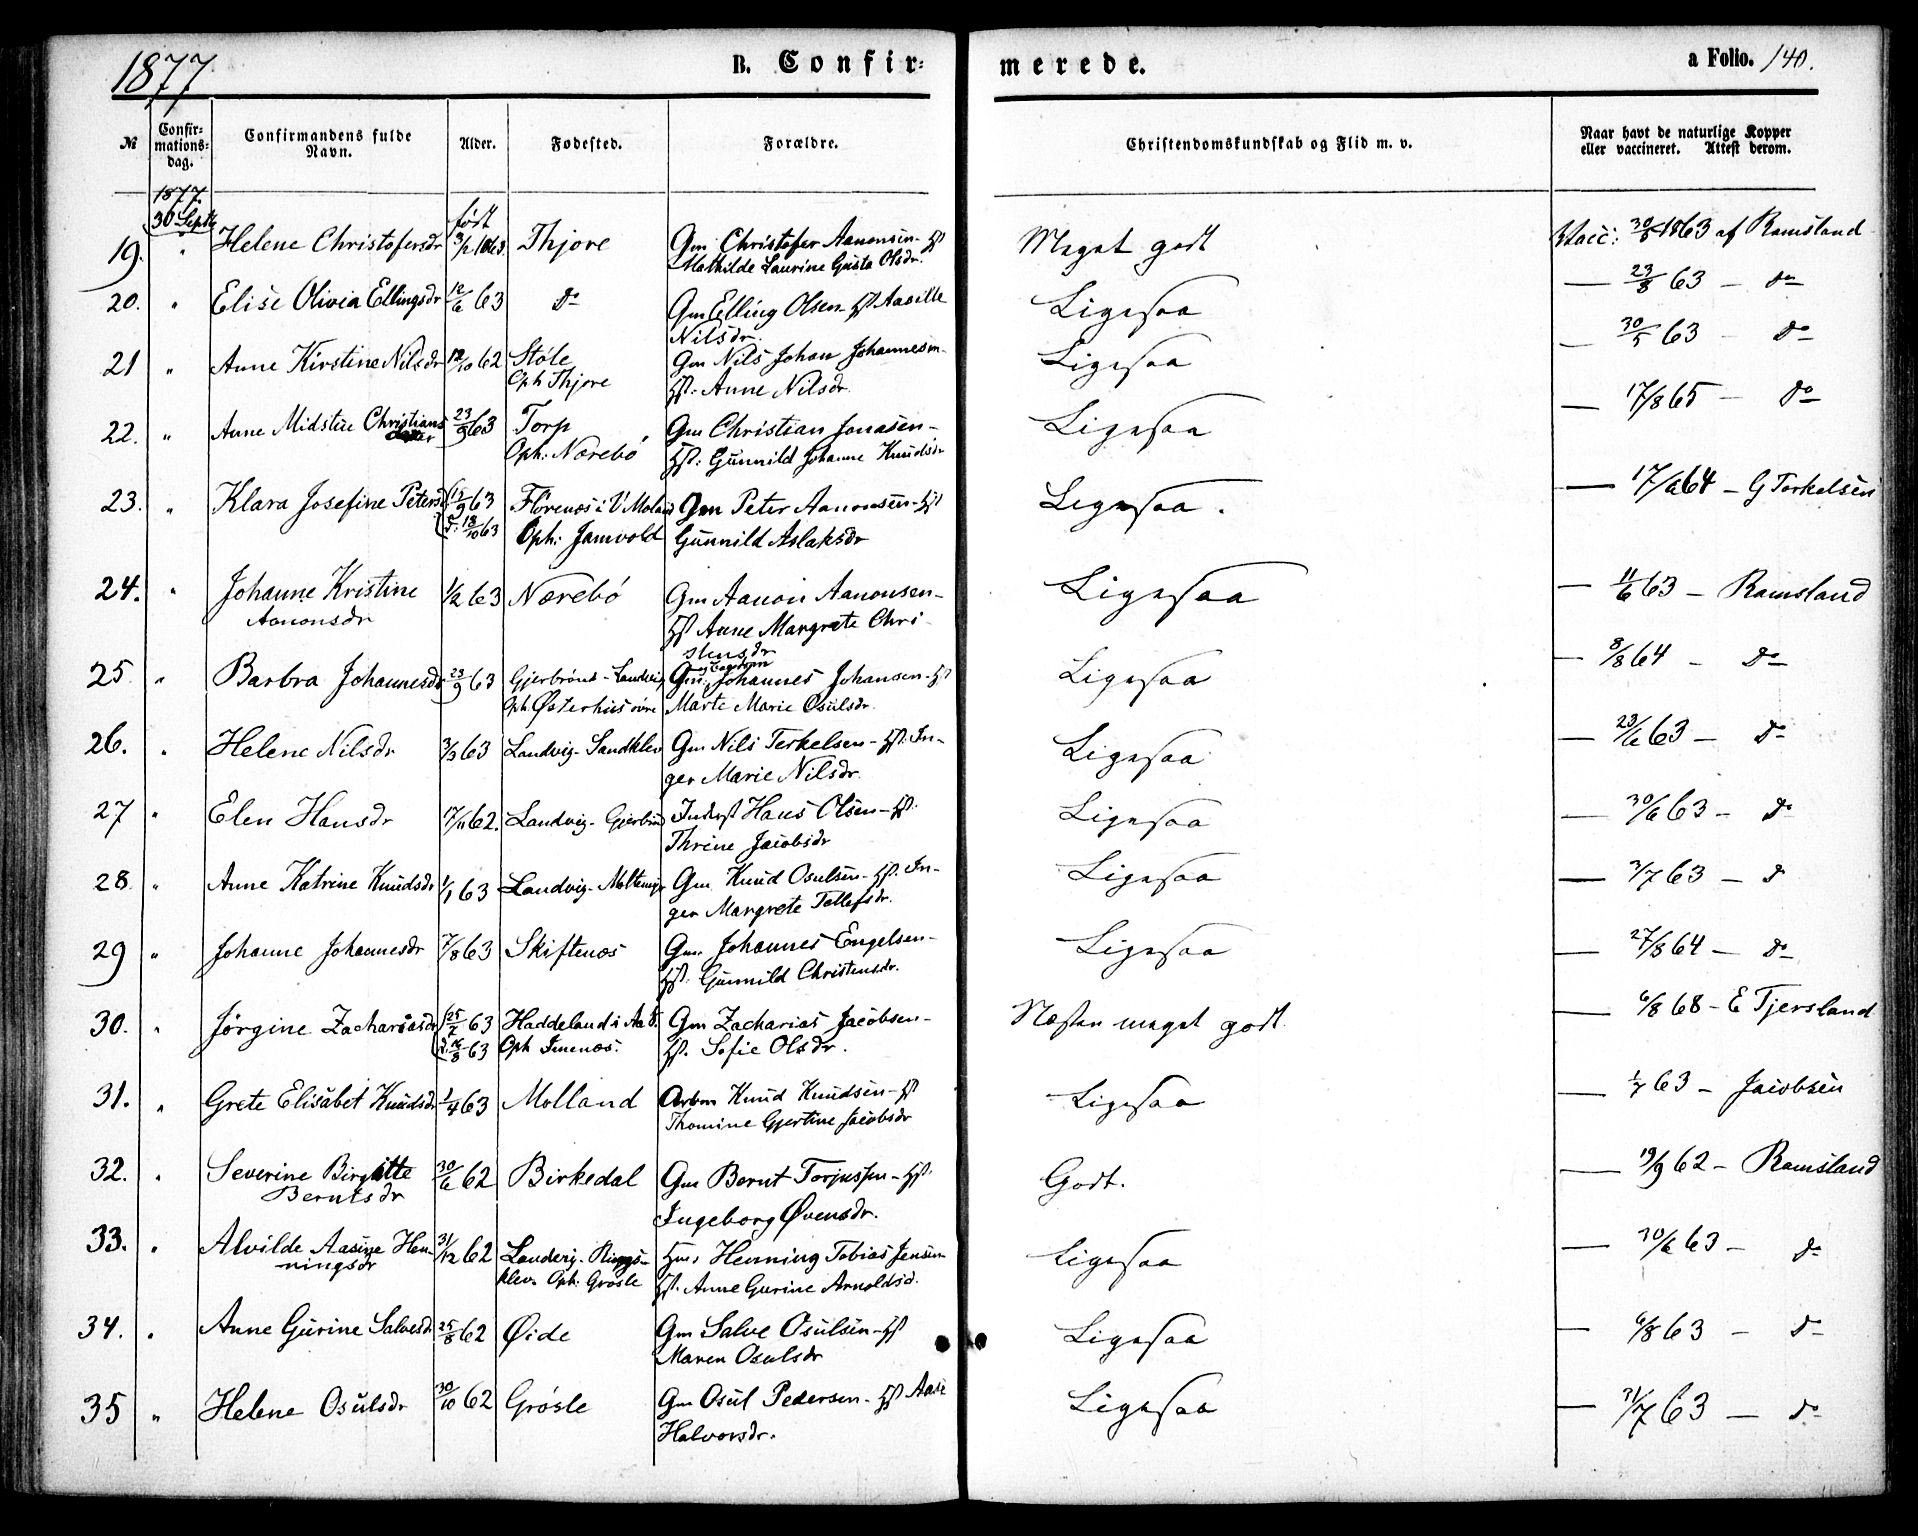 1877
B. Confir=
merede.
a Folio. 140.
№
Confir=
mations=
dag.
Confirmandens fulde
Navn.
Alder.
Fødested.
Forældre.
Christendomskundskab og Flid m. v.
Naar havt de naturlige Kopper
eller vaccineret. Attest derom.
1877
30 Septb
født
19. " Helene Christofersdr 1863. Thjore Gm Christofer Aanonsen - Hst Meget godt Vacc: 30/5 1863 af Ramsland
Mathilde Laurine Olsdr.
20. " Elise Olivia Ellingsdr 12/6 63 do Gm Elling Olsen - Hst Aasille Ligesaa — 23/8 63 — do
Nilsdr.
21 " Anne Kirstine Nilsdr 12/10 62 Støle Gm Nils Johan Johannesen - Ligesaa — 30/5 63 — do
Oph Thjore Hst: Anne Nilsdr.
22. " Anne Midstue Christians 23/9 63 Torp Gm Christian Jonasen - Ligesaa — 17/8 65 — do
datter Oph: Nærebö Hst: Gunnild Johanne Knudsdr
23. " Klara Josefine Petersd 15/9 63 Flörenæs i V Moland Gm Peter Aanonsen - Hst Ligesaa. — 17/6 64 — G Torkelsen
d. 18/10 63 Oph: Jamvold Gunnild Aslaksdr
24. " Johanne Kristine 1/2 63 Nærebö Gm Aanon Aanonsen - Ligesaa — 11/6 63 — Ramsland
Aanonsdr Hst Anne Margrete Chri-
stensdr
25. " Barbra Johannesdr 23/9 63 Gjerbrönd - Landvig Gm, Johannes Johansen - Hst Ligesaa — 8/8 64 — do
Oph Østerhus övre Marte Marie Osulsdr.
26. " Helene Nilsdr 3/3 63 Landvig - Sandklev Gm Nils Terkelsen - Hst. In- Ligesaa — 23/6 63 — do
ger Marie Nilsdr.
27 " Elen Hansdr 17/11 62. Landvig - Gjerbrönd Inderst Hans Olsen - Hst. Ligesaa — 30/6 63 — do
Thrine Jacobsdr
28. " Anne Katrine Knudsdr 1/1 63 Landvig - Moltemyr Gm. Knud Osulsen - Hst. In- Ligesaa — 3/7 63 — do
ger Margrete Tellefsdr.
29 " Johanne Johannesdr 7/8 63 Skiftenæs Gm. Johannes Engelsen - Ligesaa — 27/8 64 — do
Hst. Gunnild Christensdr.
30. " Jörgine Zachariasdr 25/7 63 Haddeland i Aa S. Gm Zacharias Jacobsen - Næsten meget godt. — 6/8 68 — E Tjersland
d. 16/8 63 Oph Imenæs. Hst. Sofie Olsdr.
31. " Grete Elisabet Knudsdr 1/4 63 Molland Arbm Knud Knudsen - Hst Ligesaa — 1/7 63 — Jacobsen
Thomine Gjertine Jacobsdr
32. " Severine Birgitte 30/6 62 Birkedal Gm Bernt Torjussen - Hst. Godt. — 19/9 62 — Ramsland
Berntsdr Ingeborg Øvensdr.
33. " Alvilde Aasine Hen- 31/12 62 Landvig - Hmd Henning Tobias Jensen Ligesaa — 30/6 63 — do
ningsdr klev. Oph: Grösle Hst. Anne Gurine Arnoldsd.
34. " Anne Gurine Salvesdr 25/8 62 Øide Gm Salve Osulsen - Hst Ligesaa — 6/8 63 — do
Maren Osulsdr
35 " Helene Osulsdr 30/10 62 Grösle Gm Osul Pedersen - Hst Aase Ligesaa — 31/7 63 — do
Halvorsdr.